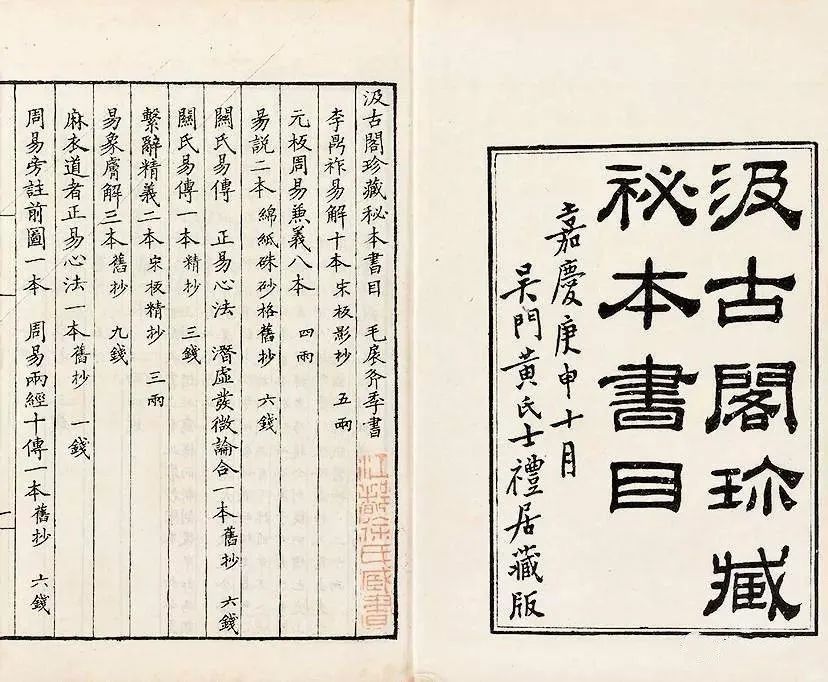 汲古閣珍藏
祕本書目
嘉慶庚申十月
吴門黄氏士禮居藏版
汲古閣珍藏秘本書目 毛扆斧季書
李鼎祚易解十本 宋板影抄 五兩
元板周易兼義八本 四兩
易説二本 綿紙硃砂格舊抄 六錢
關氏易傳 正易心法 潛虚發微論合一本舊抄 六錢
關氏易傳一本 精抄 三錢
繫辭精義二本 宋板精抄 三兩
易象膚解三本 舊抄 九錢
麻衣道者正易心法一本舊抄 一錢
周易旁註前圖一本 周易兩經十傳一本舊抄 六錢
徐氏臧書